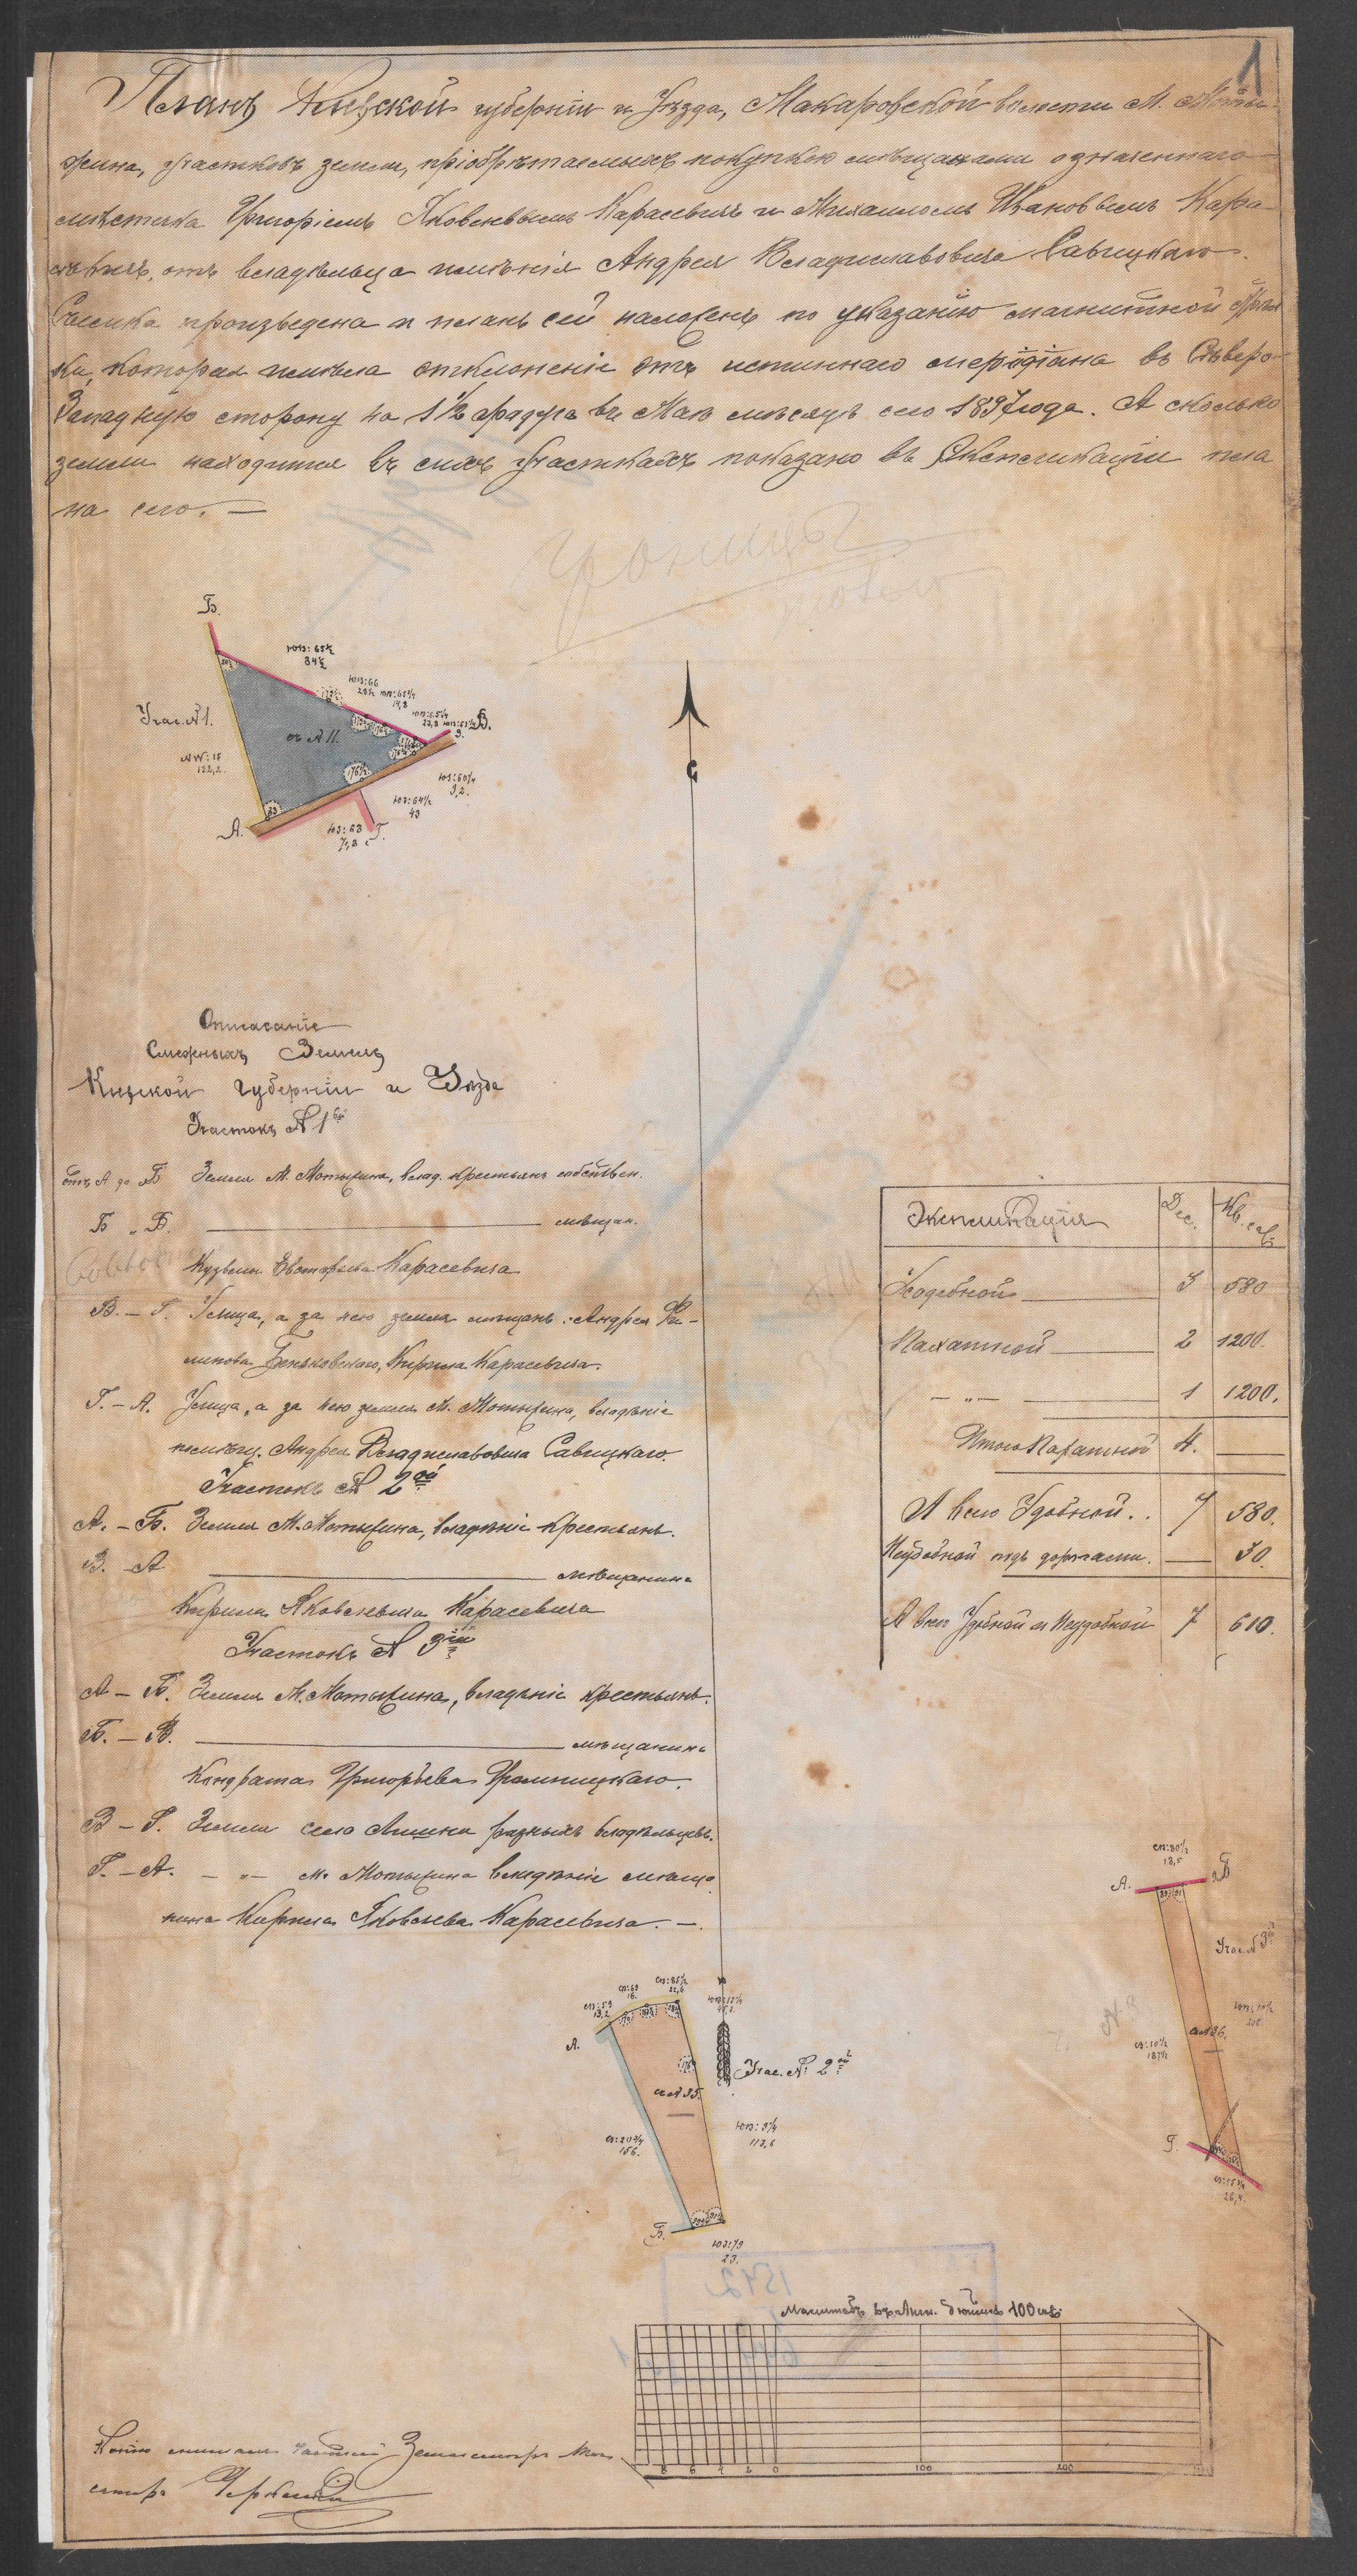 1
Планъ Кіевской губерніи и Уѣзда, Макаровской волости М. Моты-
жина, участковъ земли, пріобрѣтаемыхъ покупкою мѣщанами означеннаго
мѣстечка Григоріемъ Яковлевымъ Карасевичемъ и Михаиломъ Ивановымъ Кара-
севичемъ, отъ владѣльца имѣнія Андрея Владиславовича Савицкаго.
Съемка произведена и планъ сей наложенъ по указанію магнитной стрѣл
ки, которая имѣла отклоненіе отъ истиннаго меридіана въ Сѣверо-
Западную сторону на 1½ градуса въ Маѣ мѣсяцѣ сего 1897 года. А сколько
земли находится въ сихъ участкахъ показано въ Експликаціи пла
на сего. —
Б.
ЮВ: 65½
84½
ЮВ: 66
Учас. №1.
В.
9.
съ № 11.
NW: 15
122,2.
ЮЗ: 60¼
9,2.
ЮЗ: 64½
43
А.
ЮЗ: 63
71,8
Г.
С
Описаніе
Смежныхъ Земель
Кіевской Губерніи и Уѣзда
Участокъ № 1ый
отъ А до Б Земля М. Мотыжина, влад. крестьянъ собствен.
Б „ В. мѣщан.
Кузьмы Евстафьева Карасевича
В. – Г. Улица, а за нею земля мѣщанъ: Андрея Фи-
липова Беньковскаго, Кирила Карасевича.
Г. – А. Улица, а за нею земля М. Мотыжина, владѣніе
помѣщ. Андрея Владиславовича Савицкаго.
Участокъ № 2ой
А. – Б. Земля М. Мотыжина, владѣніе крестьянъ.
В. – А мѣщанина
Кирила Яковлевича Карасевича
Участокъ № 3ій
А – Б. Земля М. Мотыжина, владѣніе крестьянъ.
Б. – В. мѣщанина
Кондрата Григорьева Громницкаго.
В – Г. Земля села разныхъ владѣльцевъ.
Г. – А. – „ – м. Мотыжина владѣніе мѣща
нина Кирила Яковлева Карасевича. –.
Экспликація Дес. Кв. саж.
Усадебной 3 580
Пахатной 2 1200.
– „ – 1 1200.
Итого Пахатной 4.
А всего Удобной.. 7 580.
Неудобной подъ дорогами. 30.
А всего Удобной и Неудобной 7 610.
СВ: 80½
18,5
А.
Б
Учас. № 3ій
съ № 36.
СЗ: 10½
187½
Г.
26,4.
СВ: 59
13,2
СВ: 69
16.
СВ: 85½
22,6
А.
Ю
Учас. № 2ой
съ № 35.
СЗ: 20¾
156.
ЮВ: 9¼
113,6
Б.
ЮЗ: 79
23.
Масштабъ въ Англ. дюймѣ 100 саж.
8 6 4 2 0 100 200
Копію снималъ частный Землемѣръ